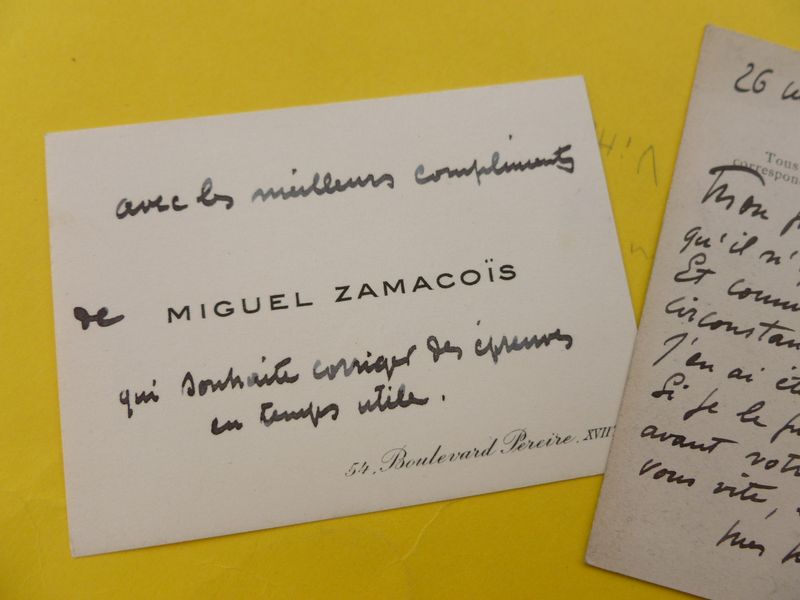 avec les meilleurs compliments
de MIGUEL ZAMACOÏS
qui souhaite corriger des épreuves
en temps utile.
54, Boulevard Pereire. XVII
26
Tous
correspon
Mon
qu'il n'
Et comm
circonstan
J'en ai ét
Si je le
avant votr
vous vite,
mes